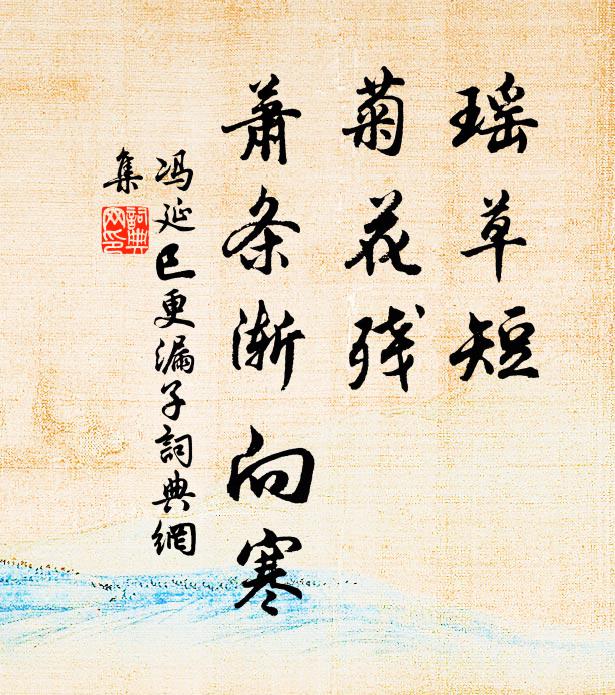 瑶草短
菊花残
萧条渐向寒
冯延巳更漏子詞典網
集
詞典
网印